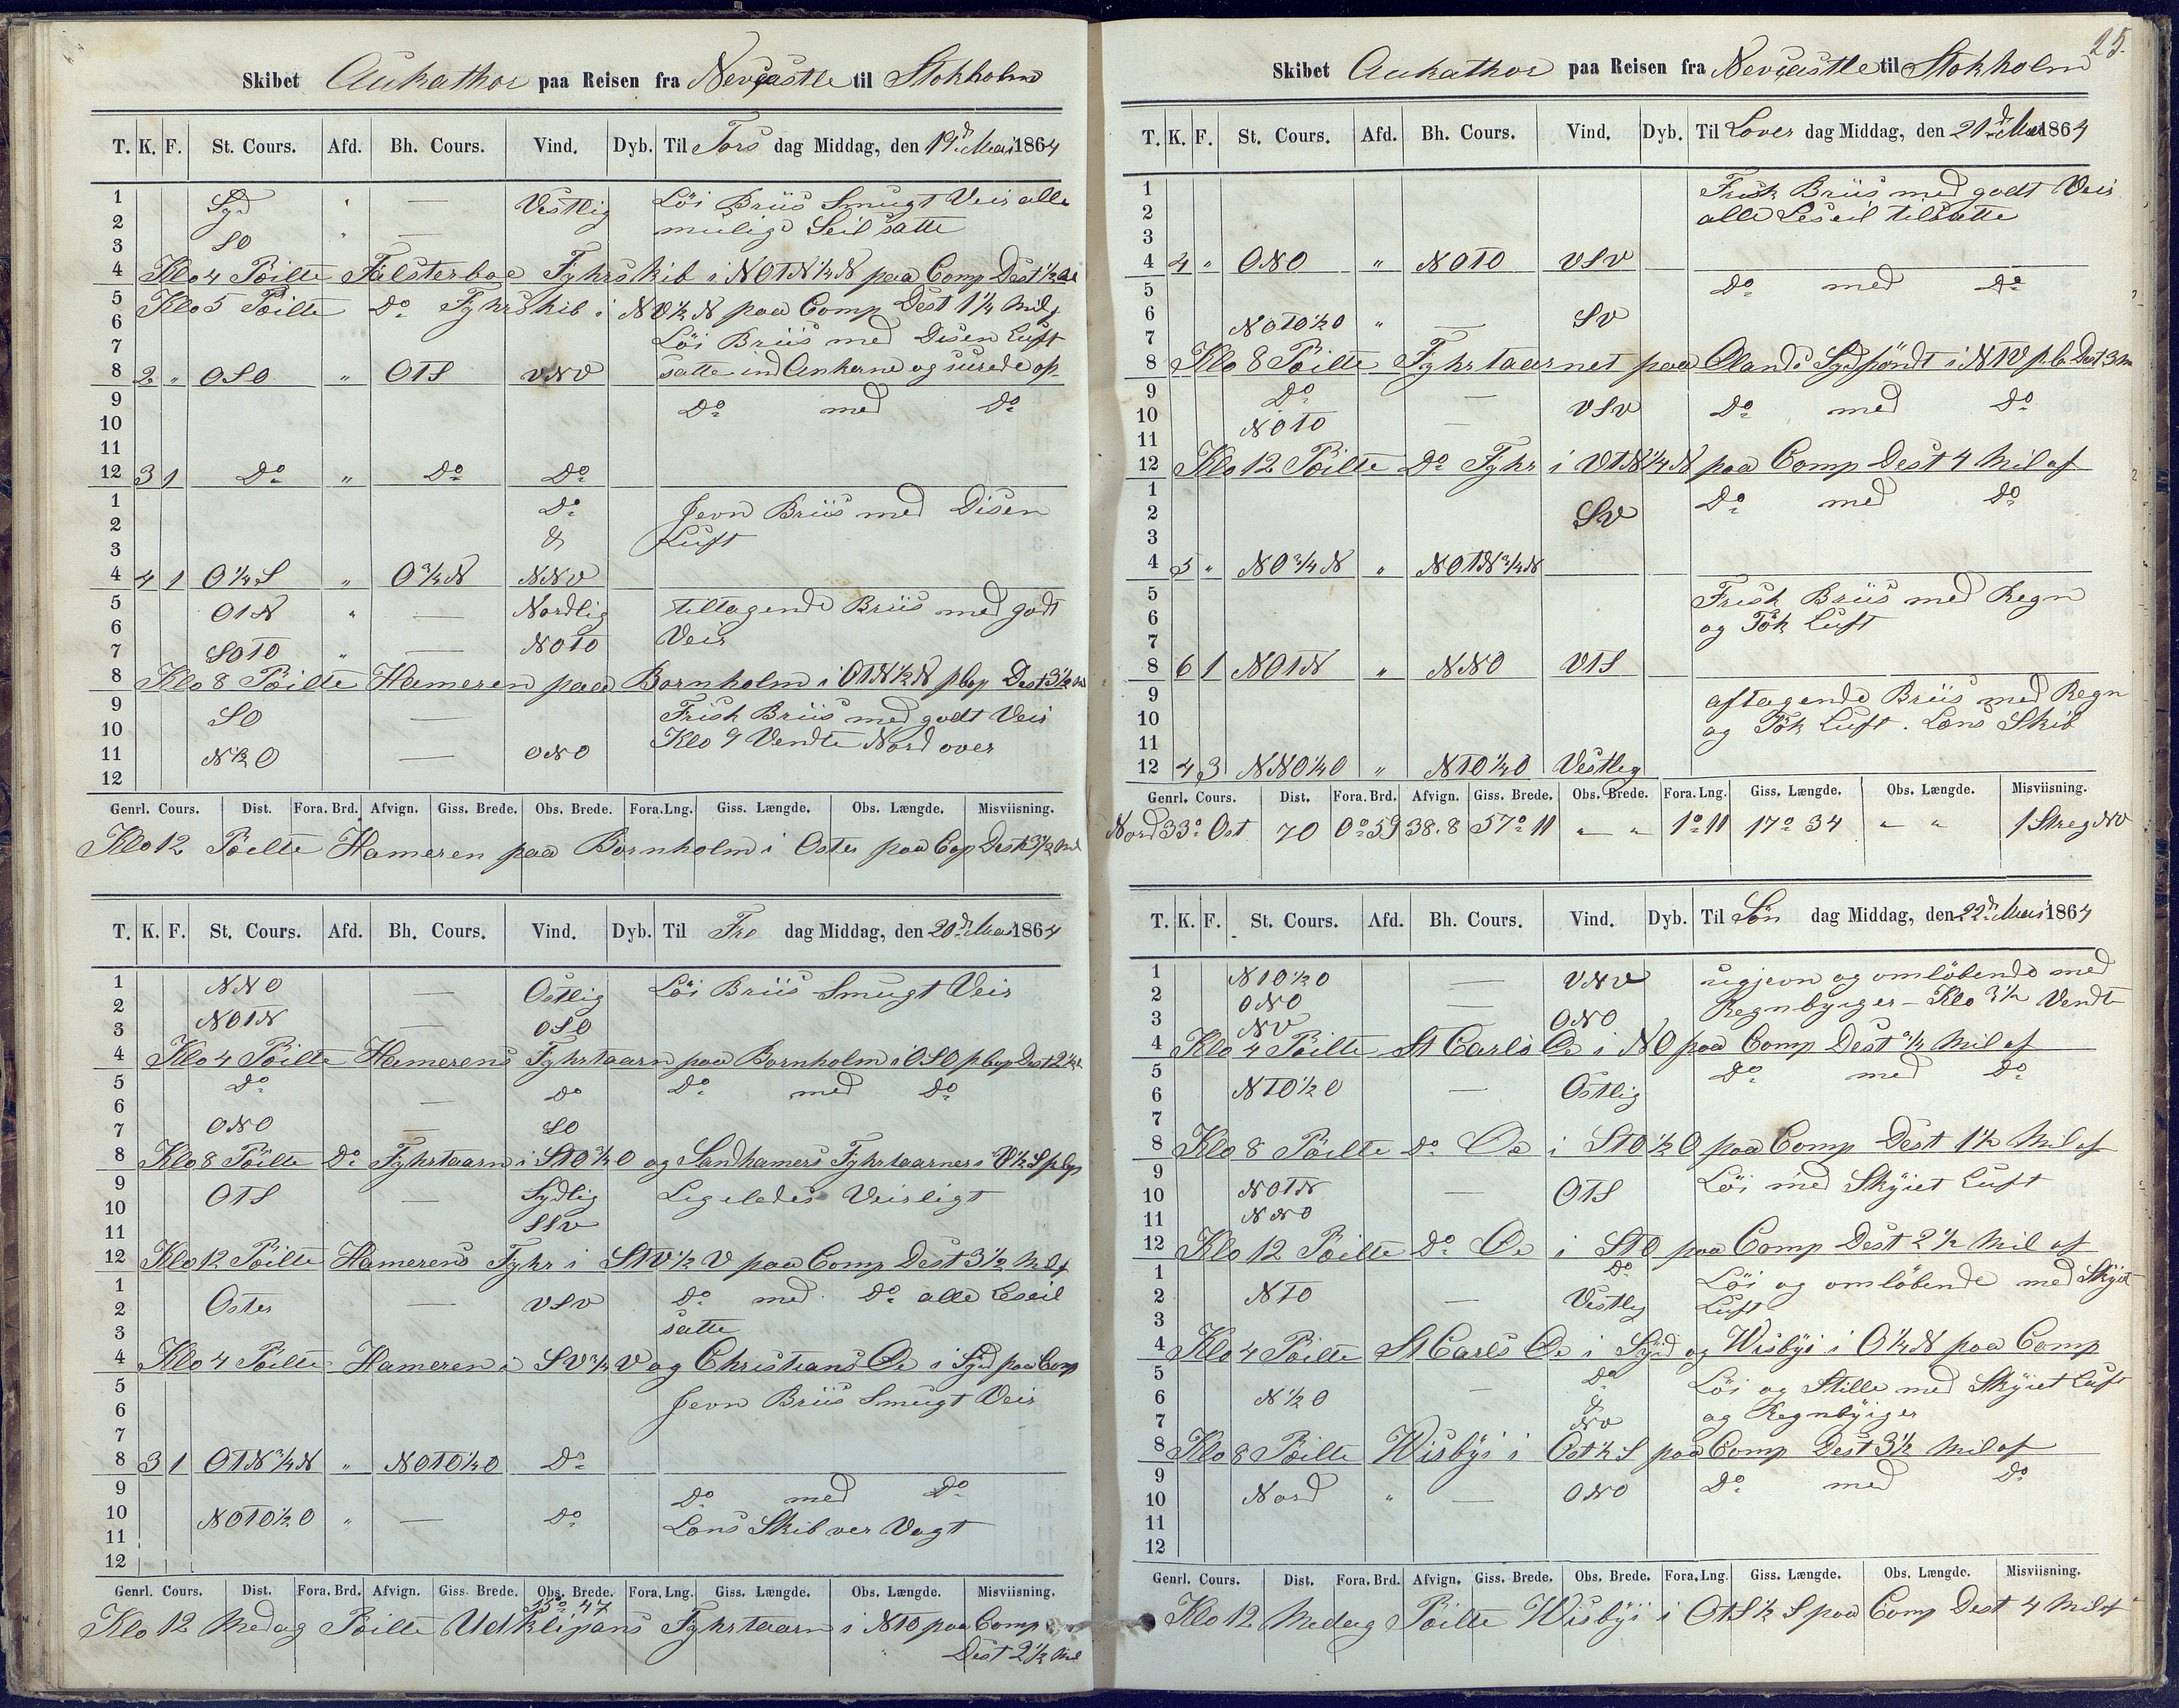 Skibet Aukathor paa Reisen fra Nevcastle til Stokholm
T. K. F. St. Cours. Afd. Bh. Cours. Vind. Dyb. Til Tors dag Middag, den 19d Mai 1864
1 Syd " — Vestlig Löi Briis Smugt Veir alle
2 mulige Seil satte
3 SO " —
4 Klo 4 Pöilte Falsterboe Fyhrskib i NOTN¼N paa Comp Dest ½
5 Klo 5 Pöilte Do Fyhrskib i NO½N paa Comp Dest 1¼ Mil
6 Löi Briis med Disen Luft
7
8 2 " OSO " OTS VNV satte ind Ankerne og surede op
9 Do med Do
10
11
12 3 1 Do " Do Do
1 Do Jevn Briis med Disen
2 & Luft
3
4 4 1 O¼S " O¾N NNV
5 OTN " — Nordlig tiltagende Briis med godt
6 Veir
7 SOTO " — NOTO
8 Klo 8 Pöilte Hameren paa Bornholm i OTN½N p Cop Dest 3½ M
9 SO — Frisk Briis med godt Veir
10 Klo 9 Vendte Nord over
11 N½O — ONO
12
Genrl. Cours. Dist. Fora. Brd. Afvign. Giss. Brede. Obs. Brede. Fora. Lng. Giss. Længde. Obs. Længde. Misviisning.
Klo 12 Pöilte Hameren paa Bornholm i Oster paa Cop Dest 3½ Mil
T. K. F. St. Cours. Afd. Bh. Cours. Vind. Dyb. Til Fre dag Middag, den 20d Mai 1864
1 NNO — Ostlig Löi Briis Smugt Veir
2 NOTN — OSO
3
4 Klo 4 Pöilte Hamerens Fyhrtaarn paa Bornholm i OSO p Cop Dest 2
5 Do — Do Do med Do
6
7 ONO — SO
8 Klo 8 Pöilte Do Fyhrtaarn i STO¾O og Sandhamers Fyhrtaarner i V½S p Cop
9 OTS — Sydlig Ligeledes Veirligt
10
11 SSV
12 Klo 12 Pöilte Hamerens Fyhr i STV½V paa Comp Dest 3½ Mil
1 Oster — VSV Do med Do alle Leseil
2 satte
3
4 Klo 4 Pöilte Hameren i SV¾V og Christians Oe i Syd paa Comp
5 Jevn Briis Smugt Veir
6
7
8 3 1 OTN¾N " NOTO¼O Do
9 Do med Do
10 NOTO½O " — Do Lens Skib ver Vagt
11
12
Genrl. Cours. Dist. Fora. Brd. Afvign. Giss. Brede. Obs. Brede. Fora. Lng. Giss. Længde. Obs. Længde. Misviisning.
Klo 12 Medag Pöilte Udklipans Fyhrtaarn i NTO paa Comp
Dest 2½ Mil
25.
Skibet Aukathor paa Reisen fra Nevcastle til Stokholm
T. K. F. St. Cours. Afd. Bh. Cours. Vind. Dyb. Til Lover dag Middag, den 21d Mai 1864
1 Frisk Briis med godt Veir
2 alle Leseil tilsatte
3
4 4 " ONO " NOTO VSV
5 Do med Do
6 NOTO½O " — SV
7
8 Klo 8 Pöilte Fyhrtaarnet paa Olands Sydpöndt i NTV p Co Dest 3 M
9 Do — VSV Do med Do
10 NOTO —
11
12 Klo 12 Pöilte Do Fyhr i VTN¼N paa Comp Dest 4 Mil af
1 Do med Do
2 SV
3
4 5 " NO¾N " NOTN¾N
5 Frisk Briis med Regn
6 og Tök Luft
7
8 6 1 NOTN " NNO VTS
9 aftagende Briis med Regn
10 og Tök Luft. Lens Skib
11
12 4 3 NNO¼O " NTO¼O Vestleg
Genrl. Cours. Dist. Fora. Brd. Afvign. Giss. Brede. Obs. Brede. Fora. Lng. Giss. Længde. Obs. Længde. Misviisning.
Nord 33° Ost 70 0° 59 38.8 57° 11 " " 1° 11 17° 34 " " 1 Streg NV
T. K. F. St. Cours. Afd. Bh. Cours. Vind. Dyb. Til Sön dag Middag, den 22d Mai 1864
1 NTO½O — VNV ugjevn og omlöbende med
2 ONO — Regnbyiger - Klo 3½ Vendt
3 NV ONO
4 Klo 4 Pöilte St Carls Oe i NO paa Comp Dest ¾ Mil af
5 Do med Do
6 NTO½O — Ostlig
7
8 Klo 8 Pöilte Do Oe i STO½O paa Comp Dest 1½ Mil af
9 Löi med Skyiet Luft
10 NOTN — OTS
11 NNO
12 Klo 12 Pöilte Do Oe i STO paa Comp Dest 2½ Mil af
1 Do Löi og omlöbende med Skyiet
2 NTO — Vestleg Luft
3
4 Klo 4 Pöilte St Carls Oe i Syd og Wisbyi i O¼N paa Comp
5 Do Löi og Stille med Skyiet Luft
6 N½O — & og Regnbyiger
7 NV
8 Klo 8 Pöilte Wisbyi i Ost½S paa Comp Dest 3½ Mil af
9 Do med Do
10 Nord " — ONO
11
12
Genrl. Cours. Dist. Fora. Brd. Afvign. Giss. Brede. Obs. Brede. Fora. Lng. Giss. Længde. Obs. Længde. Misviisning.
Klo 12 Medag Pöilte Wisbyi i OTS½S paa Comp Dest 4 Mil